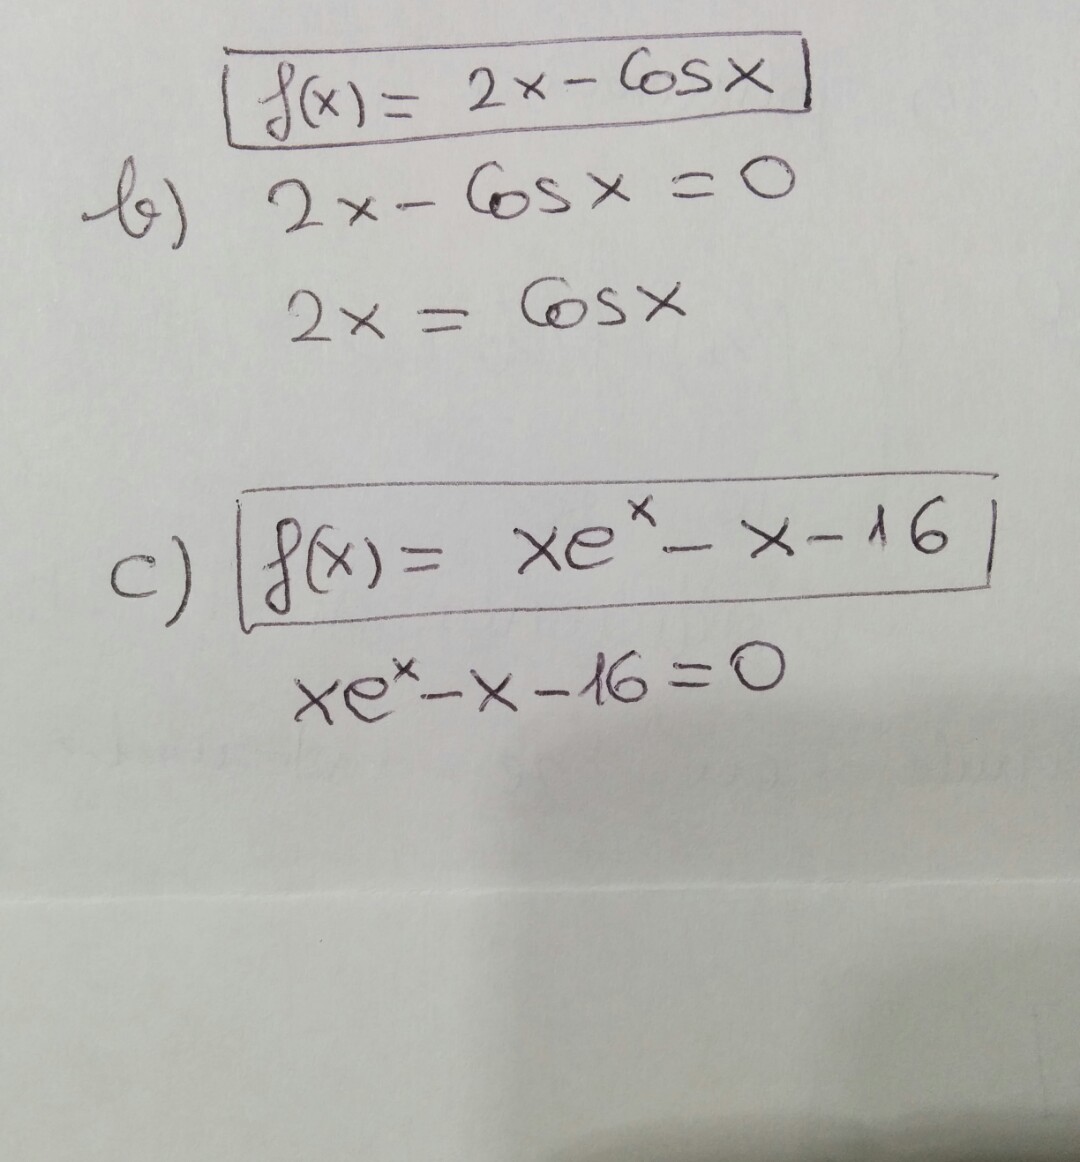 f(x) = 2x - Cosx
b) 2x - Cosx = 0
2x = Cosx
c) f(x) = xeˣ - x - 16
xeˣ - x - 16 = 0